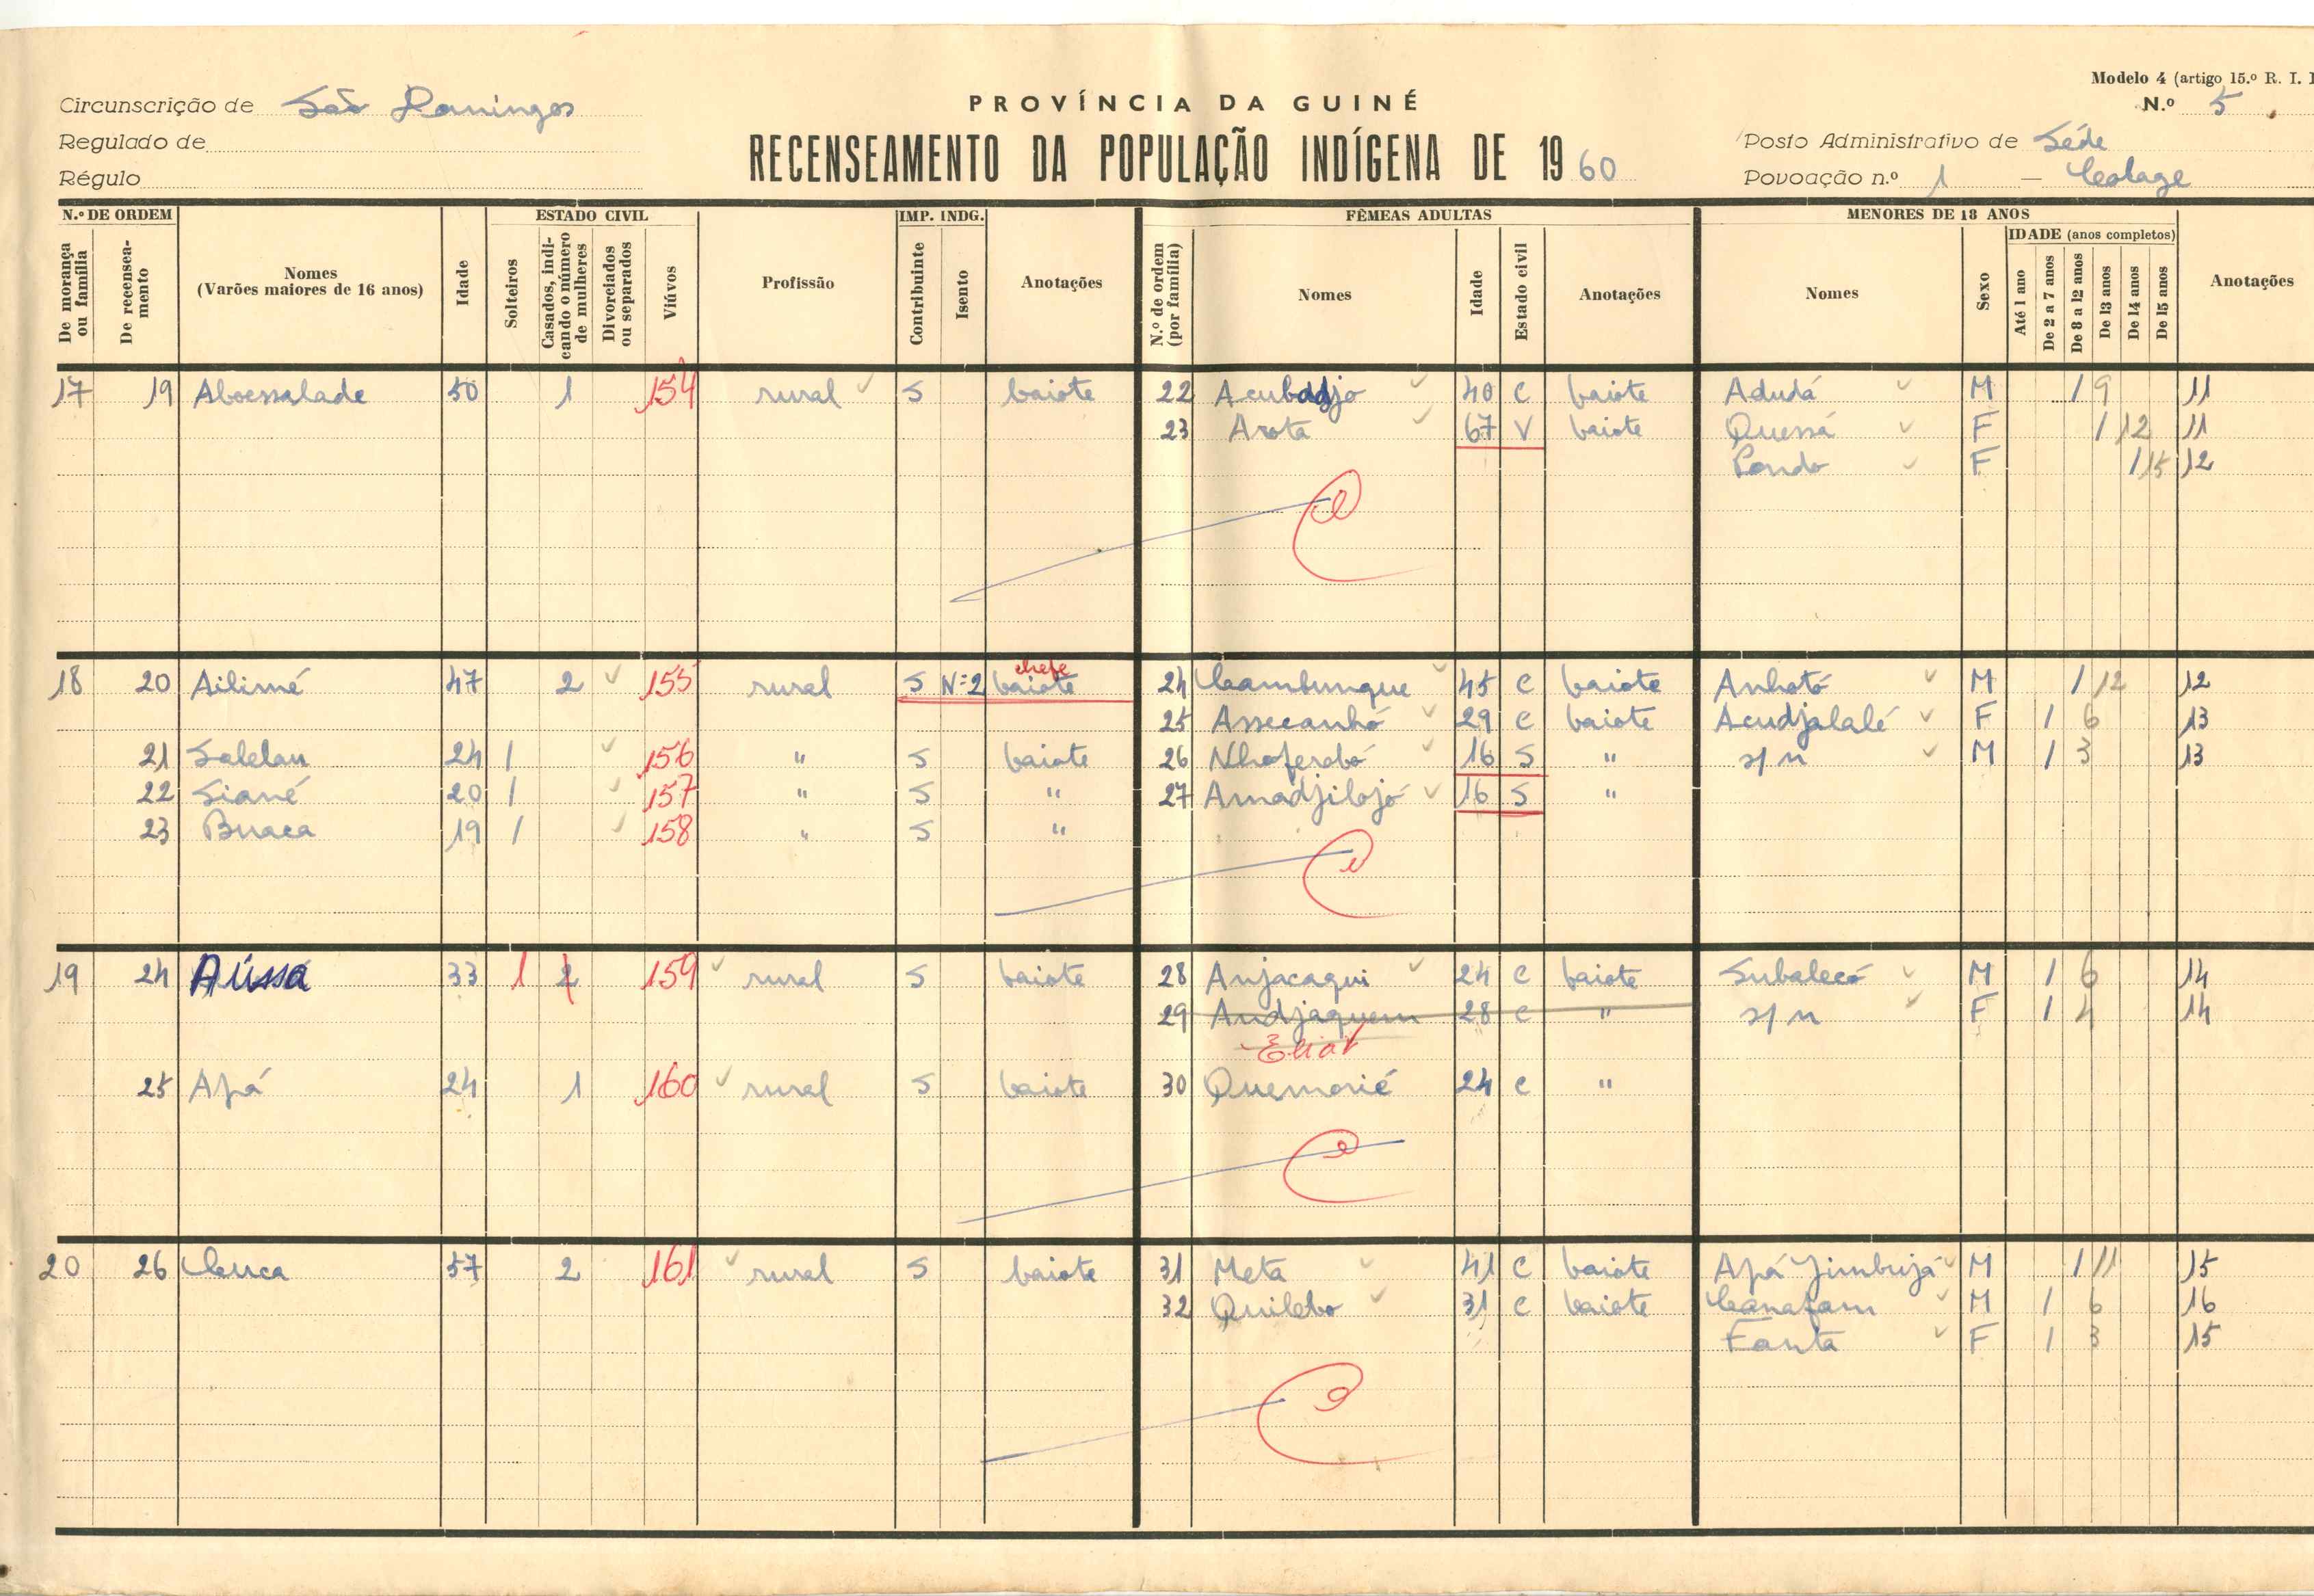 Modelo 4 (artigo 15.º R. I. I
Circunscrição de São Domingos
PROVÍNCIA DA GUINÉ
N.º 5
Regulado de
RECENSEAMENTO DA POPULAÇÃO INDÍGENA DE 1960
Posto Administrativo de Séde
Régulo
Povoação n.º 1 — Colage
N.º DE ORDEM
ESTADO CIVIL
IMP. INDG.
FÊMEAS ADULTAS
MENORES DE 18 ANOS
De morança ou família
De recenseamento
Nomes
(Varões maiores de 16 anos)
Idade
Solteiros
Casados, indicando o número de mulheres
Divorciados ou separados
Viúvos
Profissão
Contribuinte
Isento
Anotações
N.º de ordem (por família)
Nomes
Idade
Estado civil
Anotações
Nomes
Sexo
IDADE (anos completos)
Até 1 ano
De 2 a 7 anos
De 8 a 12 anos
De 13 anos
De 14 anos
De 15 anos
Anotações
17 19 Aboessalade 50 1 154 rural S baiote 22 Acubadjo 40 C baiote Adudá M 1 9 11
23 Arota 67 V baiote Quessá F 1 12 11
Pondo F 1 15 12
chefe
18 20 Ailimé 47 2 155 rural S Nº 2 baiote 24 Cambunque 45 C baiote Anhotó M 1 12 12
25 Assecanhó 29 C baiote Acudjalalé F 1 6 13
21 Salelau 24 1 156 " S baiote 26 Nhoferobó 16 S " s/n M 1 3 13
22 Siané 20 1 157 " S " 27 Amadjilojó 16 S "
23 Buaca 19 1 158 " S "
19 24 Aússa 33 1 2 159 rural S baiote 28 Anjacaqui 24 C baiote Subalecó M 1 6 14
29 Andjaquem 28 C " s/n F 1 4 14
25 Apá 24 1 160 rural S baiote 30 Quemorié 24 C "
20 26 Cuca 57 2 161 rural S baiote 31 Meta 41 C baiote Apá Jimbujá M 1 11 15
32 Quilebo 31 C baiote Canafam M 1 6 16
Fanta F 1 3 15